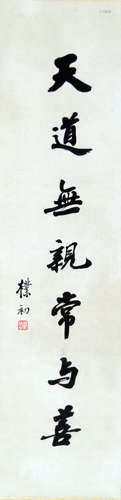 天道無親常与善
樸初